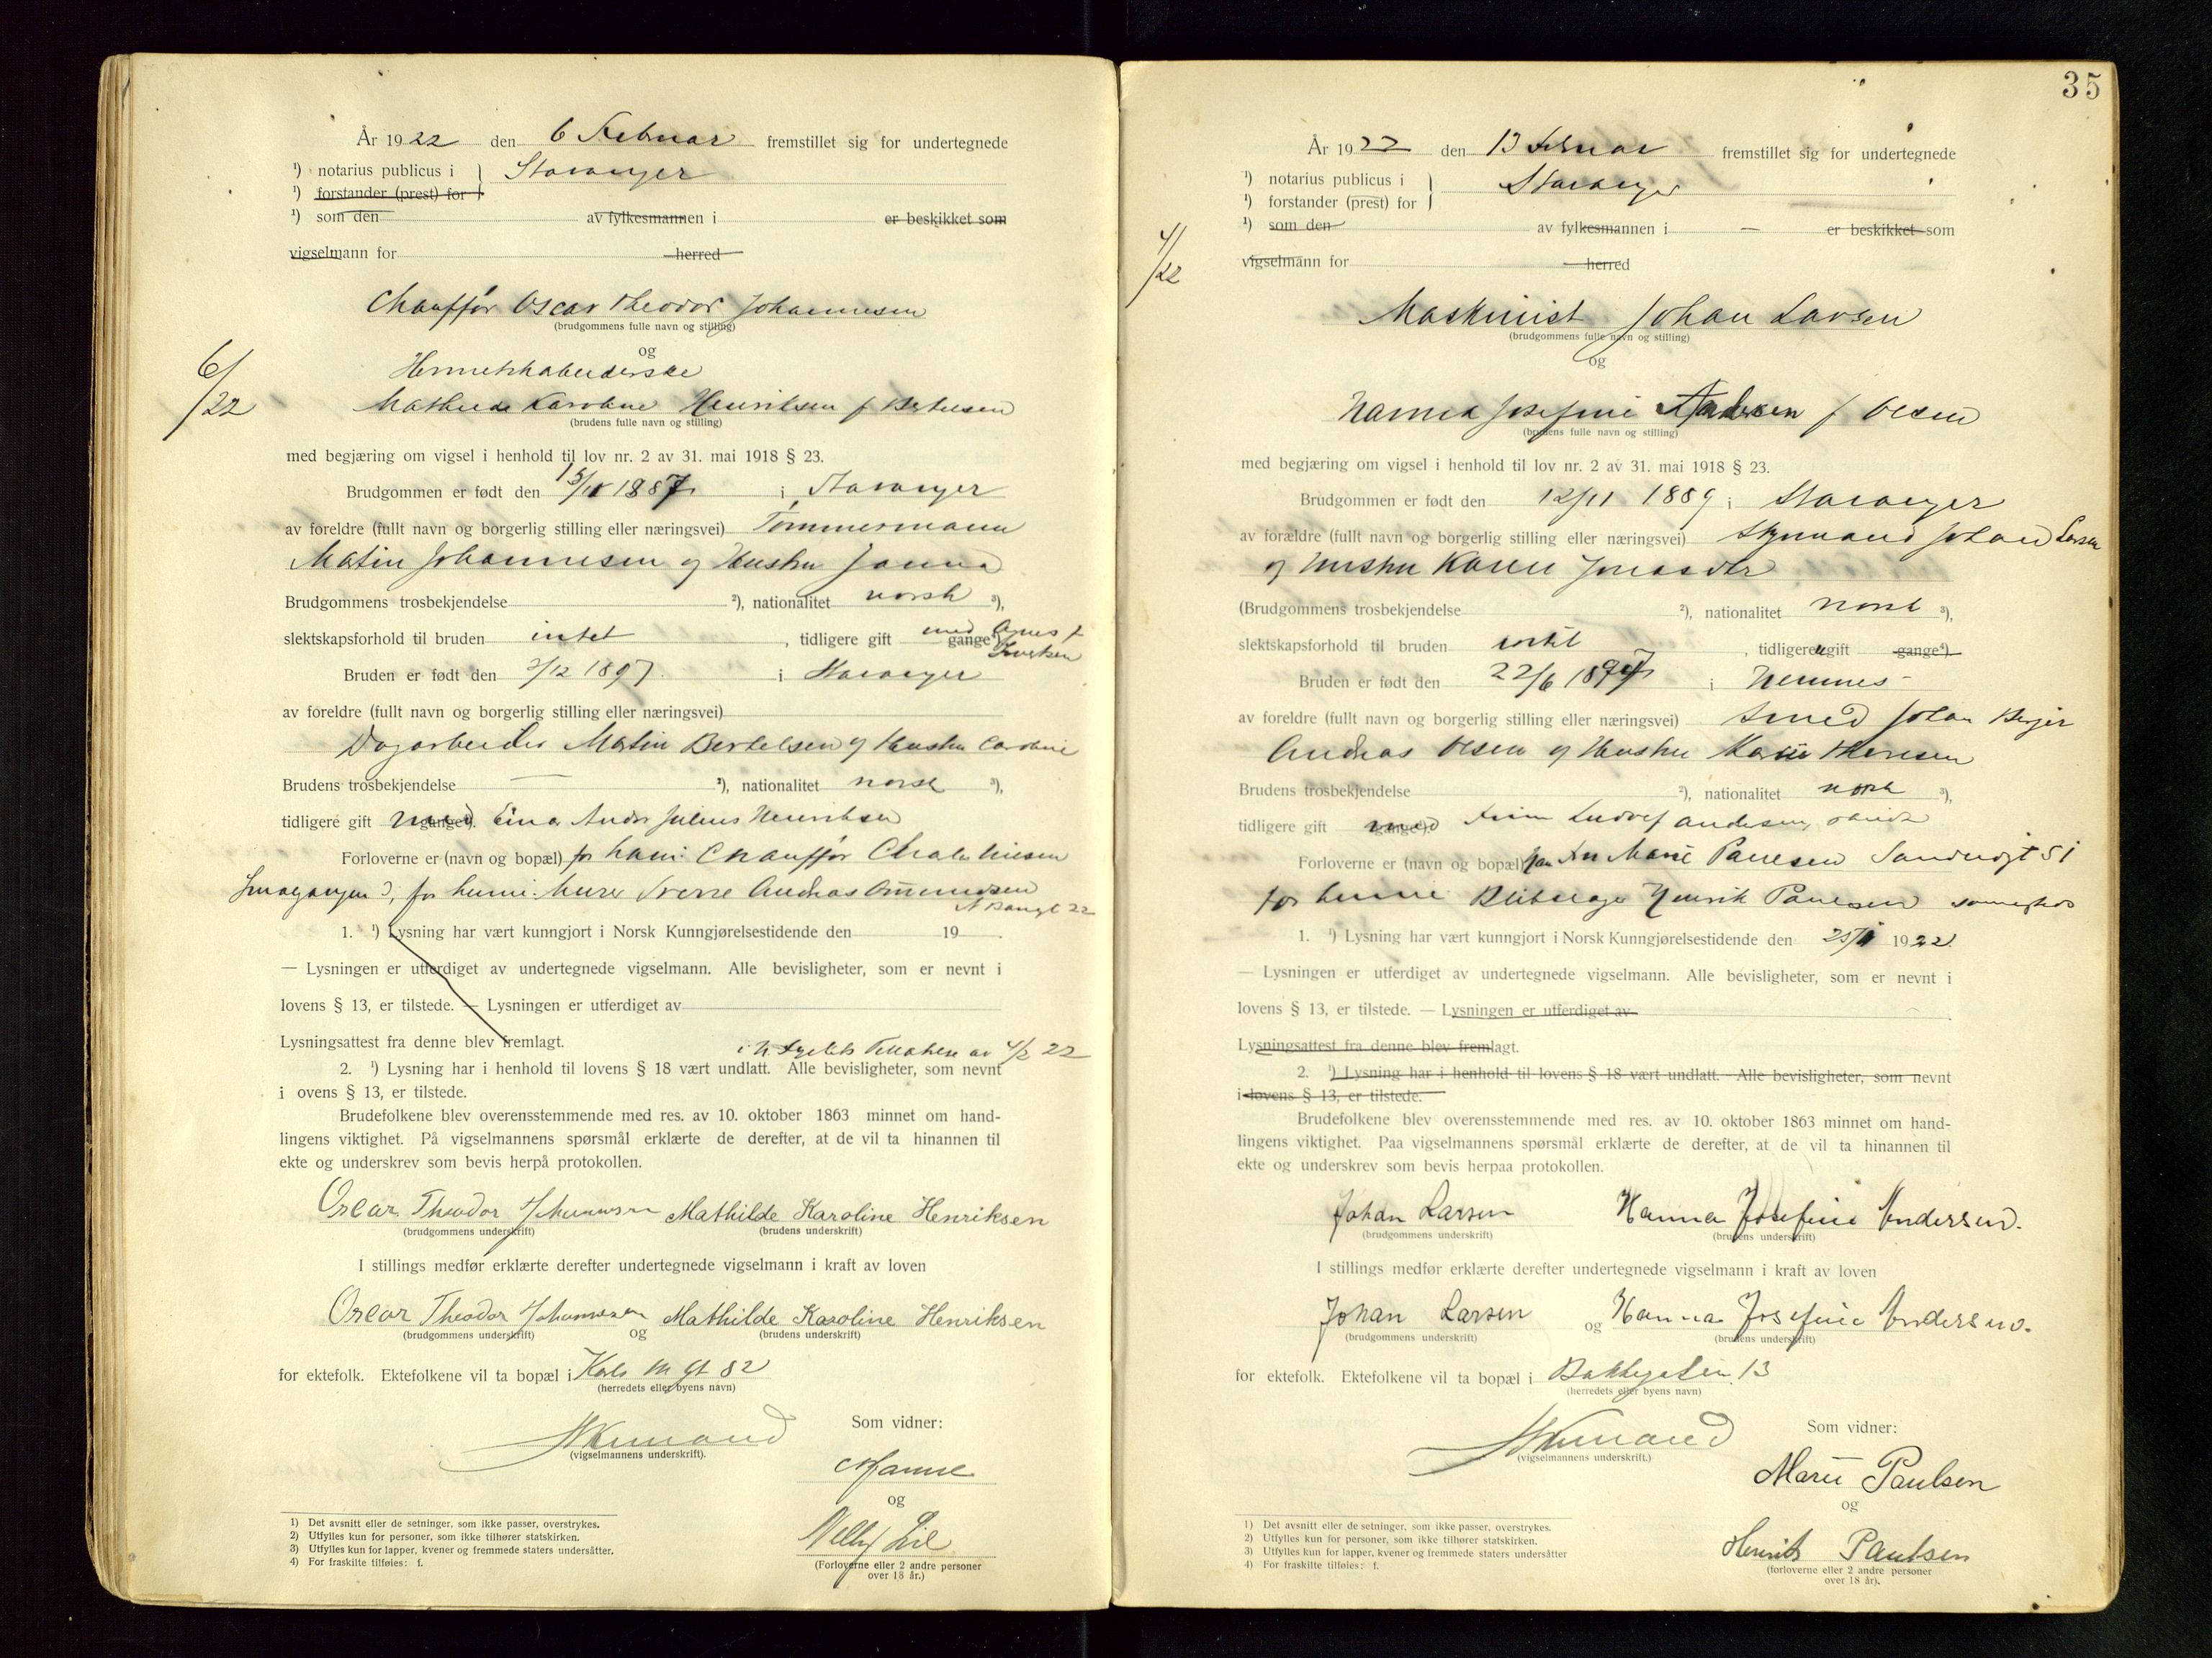 År 1922 den 6 Februar fremstillet sig for undertegnede
¹) notarius publicus i } Stavanger
¹) forstander (prest) for
¹) som den av fylkesmannen i er beskikket som
vigselmann for herred
Chauffør Oscar Theodor Johannesen
(brudgommens fulle navn og stilling)
og
6/22
Hermetikkarbeiderske
Mathilde Karoline Henriksen f Bertelsen
(brudens fulle navn og stilling)
med begjæring om vigsel i henhold til lov nr. 2 av 31. mai 1918 § 23.
Brudgommen er født den 1887 i Stavanger
av foreldre (fullt navn og borgerlig stilling eller næringsvei) Tømmermann
Martin Johannesen og Hustru Janna
Brudgommens trosbekjendelse ²), nationalitet norsk ³),
slektskapsforhold til bruden intet , tidligere gift med gange⁴)
Bruden er født den 2/12 1897. i Stavanger
av foreldre (fullt navn og borgerlig stilling eller næringsvei)
Dagarbeider Martin Bertelsen og Hustru Caroline
Brudens trosbekjendelse — ²), nationalitet norsk ³),
tidligere gift med gange⁴). Einar Andr Julius Henriksen
Forloverne er (navn og bopæl) for ham: Chauffør
for henne: Murer Sverre Andreas
22
1. ¹) Lysning har vært kunngjort i Norsk Kunngjørelsestidende den 19 .
— Lysningen er utferdiget av undertegnede vigselmann. Alle bevisligheter, som er nevnt i
lovens § 13, er tilstede. — Lysningen er utferdiget av
Lysningsattest fra denne blev fremlagt.
22
2. ¹) Lysning har i henhold til lovens § 18 vært undlatt. Alle bevisligheter, som nevnt
i ovens § 13, er tilstede.
Brudefolkene blev overensstemmende med res. av 10. oktober 1863 minnet om hand-
lingens viktighet. På vigselmannens spørsmål erklærte de derefter, at de vil ta hinannen til
ekte og underskrev som bevis herpå protokollen.
Oscar Theodor Johannesen Mathilde Karoline Henriksen
(brudgommens underskrift) (brudens underskrift)
I stillings medfør erklærte derefter undertegnede vigselmann i kraft av loven
Oscar Theodor Johannesen og Mathilde Karoline Henriksen
(brudgommens underskrift) (brudens underskrift)
for ektefolk. Ektefolkene vil ta bopæl i Karls m gt 82
(herredets eller byens navn)
(vigselmannens underskrift).
Som vidner:
og
Nelly
(Forloverne eller 2 andre personer
over 18 år.)
1) Det avsnitt eller de setninger, som ikke passer, overstrykes.
2) Utfylles kun for personer, som ikke tilhører statskirken.
3) Utfylles kun for lapper, kvener og fremmede staters undersåtter.
4) For fraskilte tilføies: f.
35
År 1922 den 13 Februar fremstillet sig for undertegnede
¹) notarius publicus i } Stavanger
¹) forstander (prest) for
¹) som den av fylkesmannen i — er beskikket som
vigselmann for herred
/22
Maskinist Johan Larsen
(brudgommens fulle navn og stilling)
og
Hanna Josefine Andersen f Olsen
(brudens fulle navn og stilling)
med begjæring om vigsel i henhold til lov nr. 2 av 31. mai 1918 § 23.
Brudgommen er født den 12/11 1889 i Stavanger
av forældre (fullt navn og borgerlig stilling eller næringsvei) Styrmand Johan Larsen
og Hustru Karen Jonasdtr
(Brudgommens trosbekjendelse ²), nationalitet norsk ³),
slektskapsforhold til bruden intet , tidligere ugift gange⁴).
Bruden er født den 22/6 1897 i Hemnes
av foreldre (fullt navn og borgerlig stilling eller næringsvei) Smed Johan
Andreas Olsen og Hustru
Brudens trosbekjendelse ²), nationalitet norsk ³),
tidligere gift med gange⁴). Ludvig Andersen,
Forloverne er (navn og bopæl) Marie Paulsen 51
for henne Henrik Paulsen sammesteds
1. ¹) Lysning har vært kunngjort i Norsk Kunngjørelsestidende den 25/1 1922.
— Lysningen er utferdiget av undertegnede vigselmann. Alle bevisligheter, som er nevnt i
lovens § 13, er tilstede. — Lysningen er utferdiget av
Lysningsattest fra denne blev fremlagt.
2. ¹) Lysning har i henhold til lovens § 18 vært undlatt. Alle bevisligheter, som nevnt
i lovens § 13, er tilstede.
Brudefolkene blev overensstemmende med res. av 10. oktober 1863 minnet om hand-
lingens viktighet. Paa vigselmannens spørsmål erklærte de derefter, at de vil ta hinannen til
ekte og underskrev som bevis herpaa protokollen.
Johan Larsen Hanna Josefine Andersen.
(brudgommens underskrift) (brudens underskrift)
I stillings medfør erklærte derefter undertegnede vigselmann i kraft av loven
Johan Larsen og Hanna Josefine Andersen.
(brudgommens underskrift) (brudens underskrift)
for ektefolk. Ektefolkene vil ta bopæl i Bakkegaten 13
(herredets eller byens navn)
(vigselmannens underskrift.)
Som vidner:
Marie Paulsen
og
Henrik Paulsen
(forloverne eller 2 andre personer
over 18 år).
1) Det avsnitt eller de setninger, som ikke passer, overstrykes.
2) Utfylles kun for personer, som ikke tilhører statskirken.
3) Utfylles kun for lapper, kvener og fremmede staters undersåtter
4) For fraskilte tilføies: f.